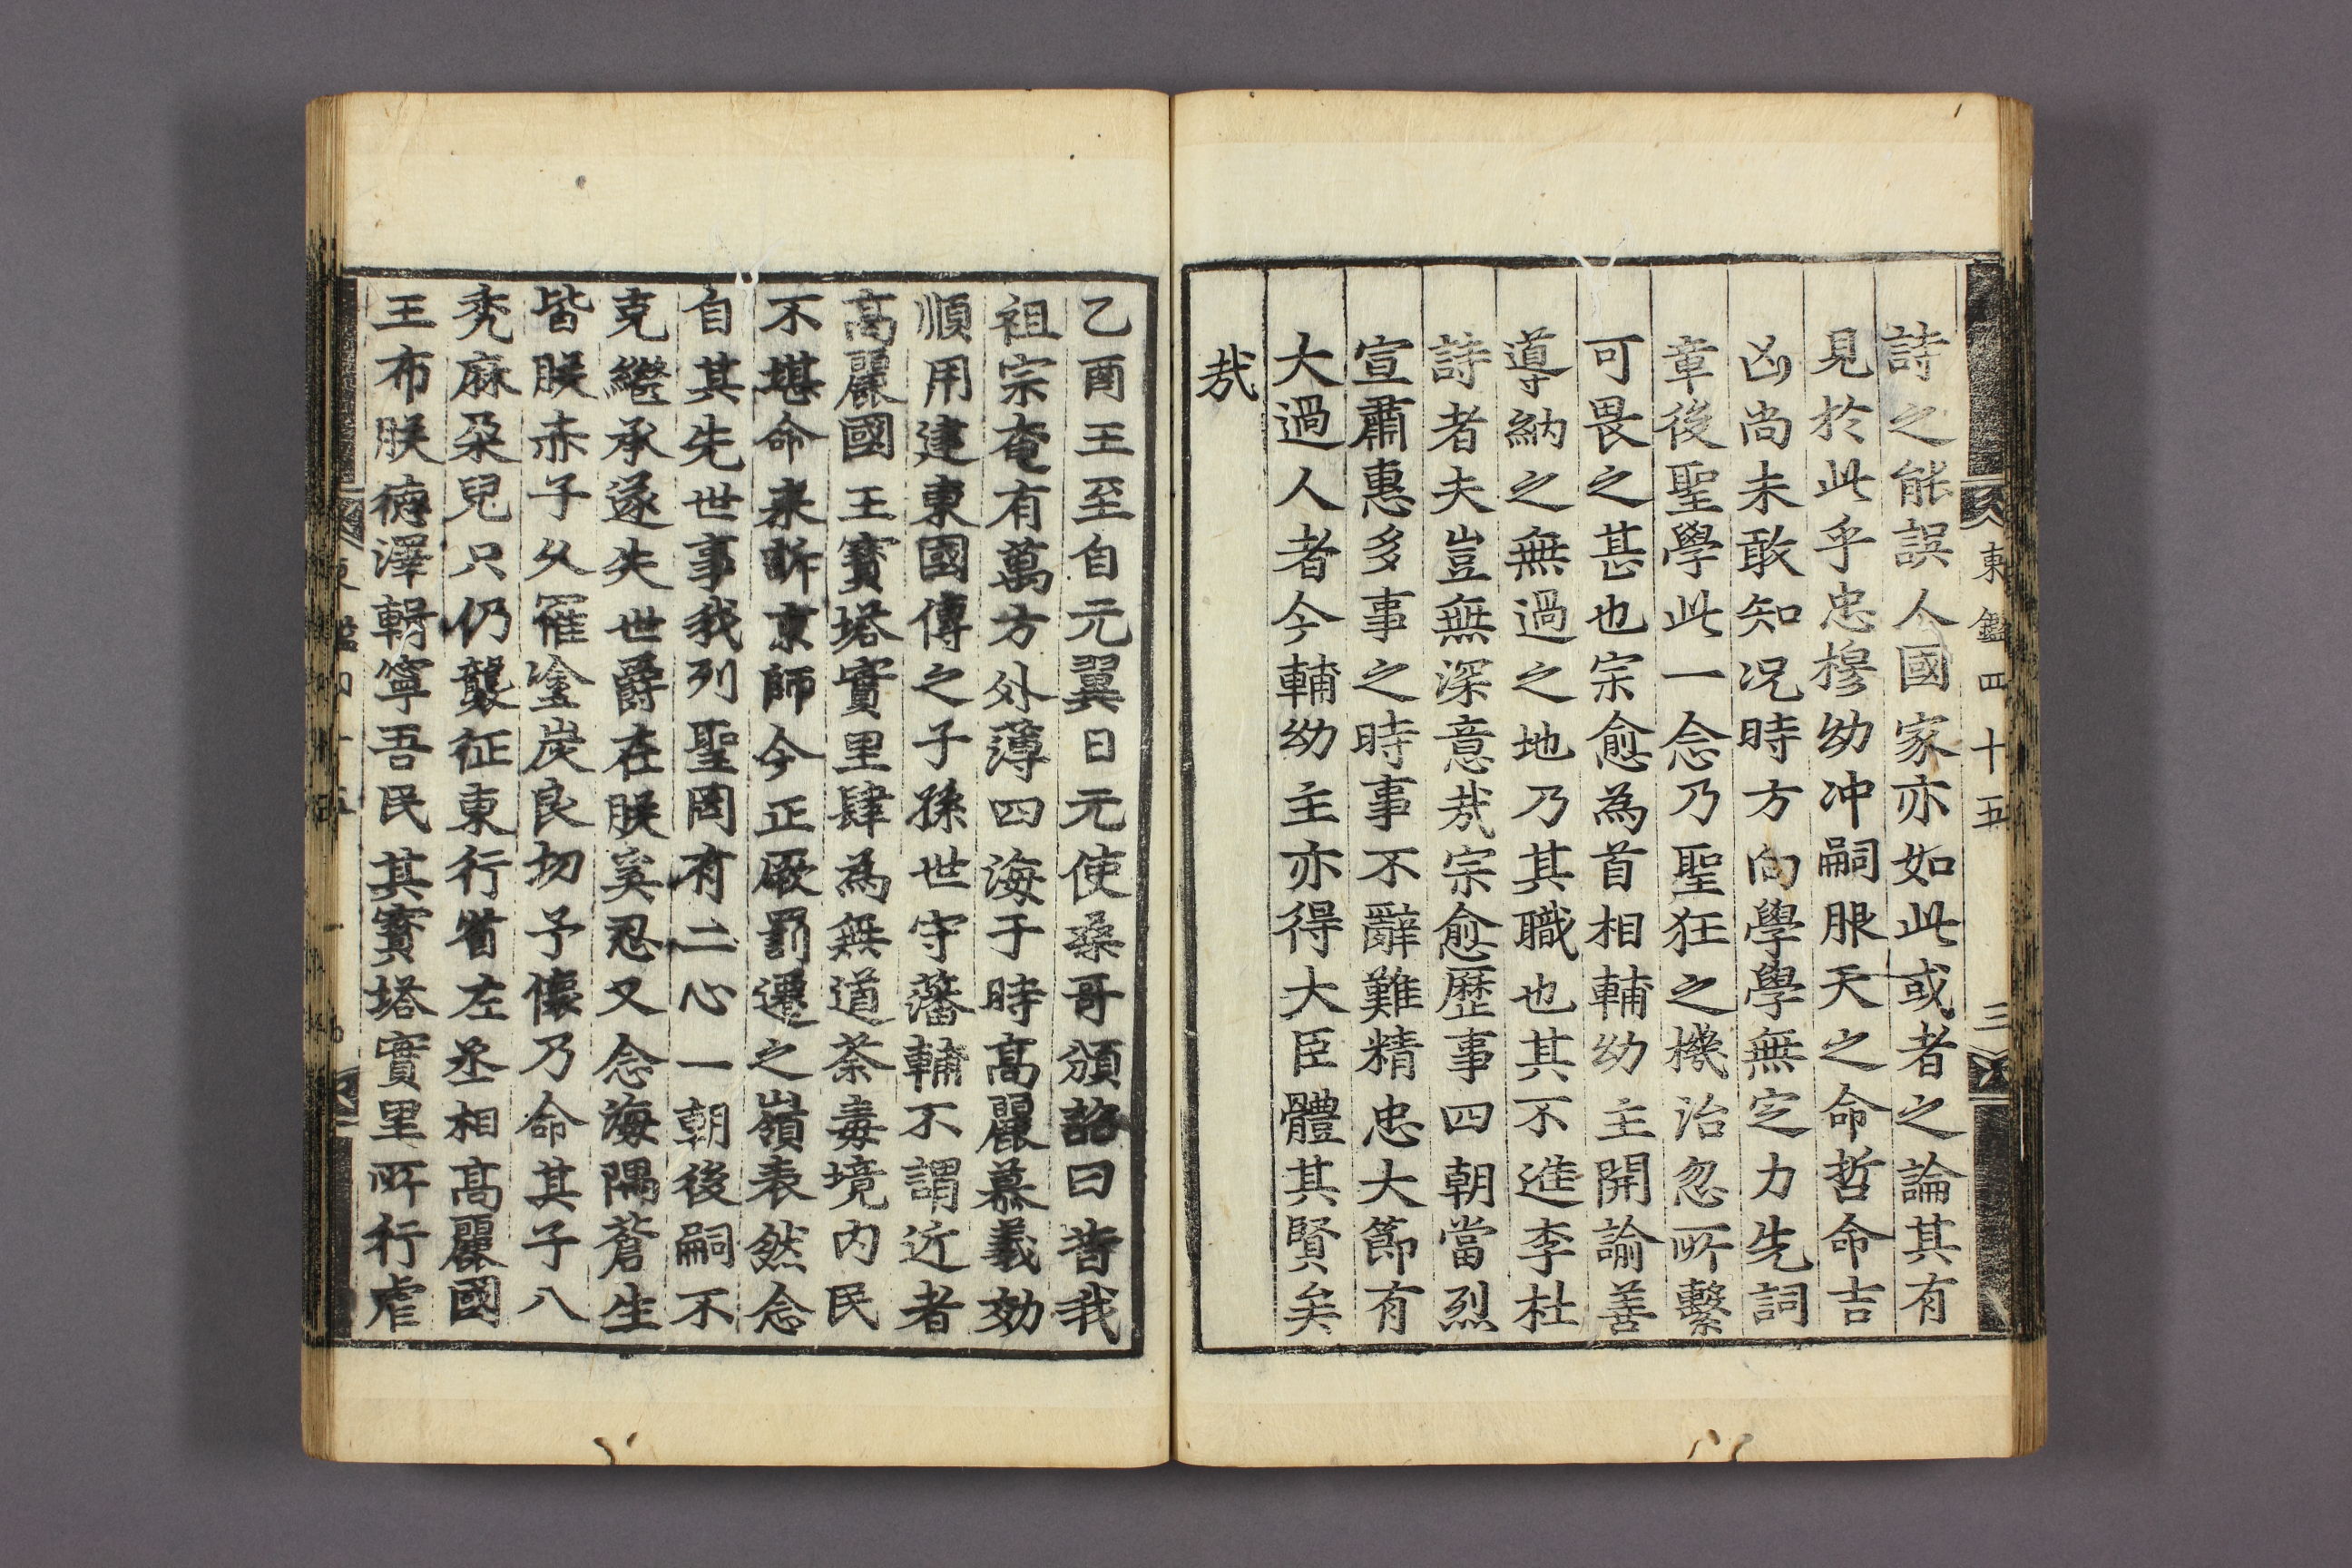 東鑑四十五 三
詩之能誤人國家亦如此或者之論其有
見於此乎忠穆幼冲嗣服天之命哲命吉
凶尚未敢知况時方向學學無定力先詞
章後聖學此一念乃聖狂之機治忽所繫
可畏之甚也宗愈為首相輔幼主開諭善
導納之無過之地乃其職也其不進李杜
詩者夫豈無深意㢤宗愈歷事四朝當烈
宣肅惠多事之時事不辭難精忠大節有
大過人者今輔幼主亦得大臣體其賢矣
㢤
乙酉王至自元翼日元使桑哥頒詔曰昔我
祖宗奄有萬方外薄四海于時高麗慕義効
順用建東國傳之子孫世守藩輔不謂近者
高麗國王寶塔實里肆為無道荼毒境內民
不堪命来訴京師今正厥罰遷之嶺表然念
自其先世事我列聖罔有二心一朝後嗣不
克繼承遂失世爵在朕奚忍又念海隅蒼生
皆朕赤子久罹塗炭良切予懷乃命其子八
禿麻朶兒只仍襲征東行省左丞相高麗國
王布朕德澤輯寧吾民其寶塔實里所行虐